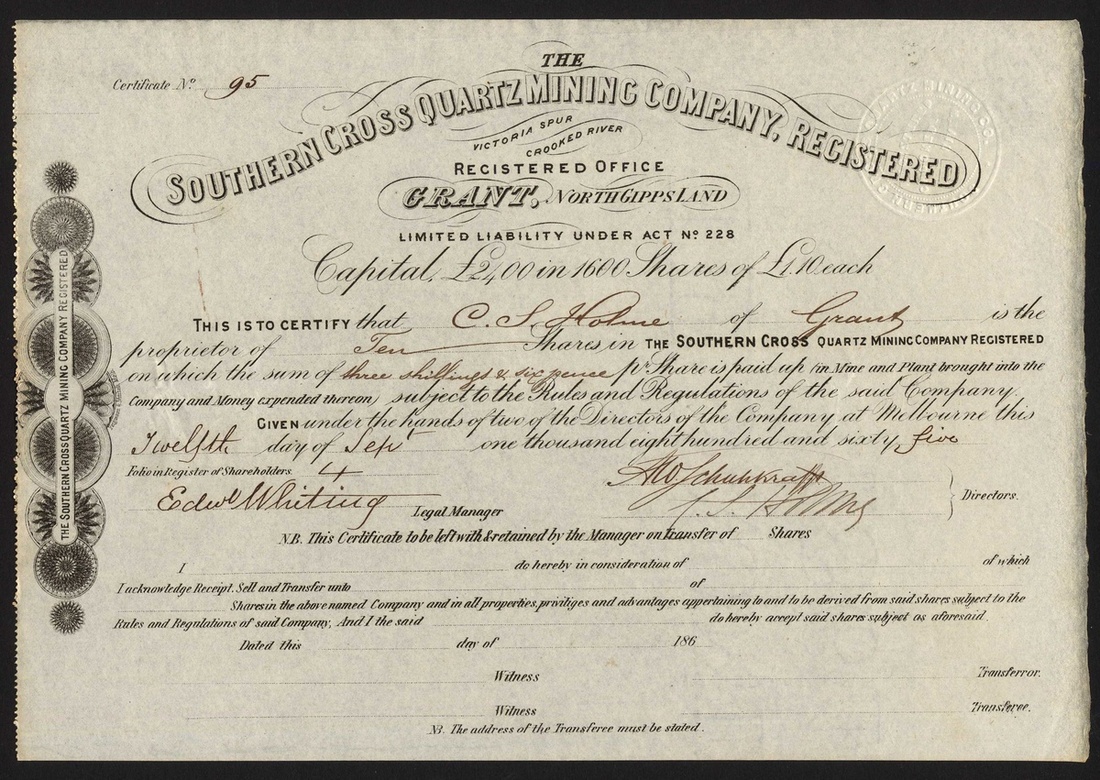 THE
Certificate No. 95
SOUTHERN CROSS QUARTZ MINING COMPANY, REGISTERED
VICTORIA SPUR
CROOKED RIVER
REGISTERED OFFICE
GRANT, NORTH GIPPS LAND
LIMITED LIABILITY UNDER ACT No. 228
Capital, £2,400 in 1600 Shares of £1.10 each
THIS IS TO CERTIFY that C. S. Holme of Grant is the
proprietor of Ten Shares in THE SOUTHERN CROSS QUARTZ MINING COMPANY REGISTERED
on which the sum of three shillings & six pence pr Share is paid up (in Mine and Plant brought into the
Company and Money expended thereon) subject to the Rules and Regulations of the said Company.
GIVEN under the hands of two of the Directors of the Company at Melbourne this
Twelfth day of Sept one thousand eight hundred and sixty five
Folio in Register of Shareholders. 4
Edwd Whiting Legal Manager
C. S. Holme
Directors.
N.B. This Certificate to be left with & retained by the Manager on transfer of Shares
I do hereby in consideration of of which
I acknowledge Receipt. Sell and Transfer unto of
Shares in the above named Company and in all properties, priviliges and advantages appertaining to and to be derived from said shares subject to the
Rules and Regulations of said Company, And I the said do hereby accept said shares subject as aforesaid.
Dated this day of 186
Witness Transferror.
Witness Transferee.
NB. The address of the Transferee must be stated.
THE SOUTHERN CROSS QUARTZ MINING COMPANY REGISTERED
QUARTZ MINING CO.